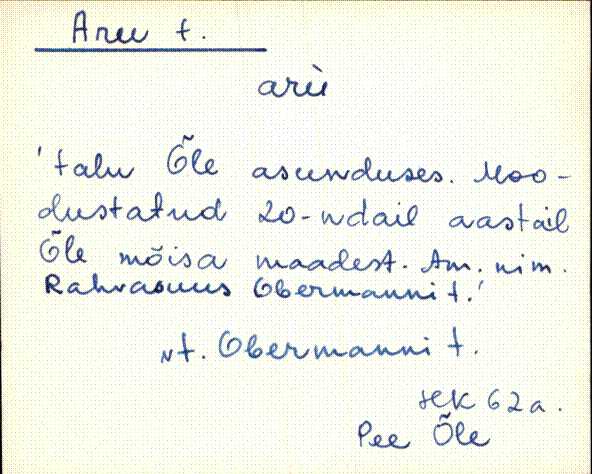 Aru t.
arù
'talu Õle asunduses. Moo-
dustatud 20-ndail aastail
Õle mõisa maadest. Am. nim.
Rahvasuus Obermanni t.'
vt. Obermanni t.
HK 62a.
Pee Õle